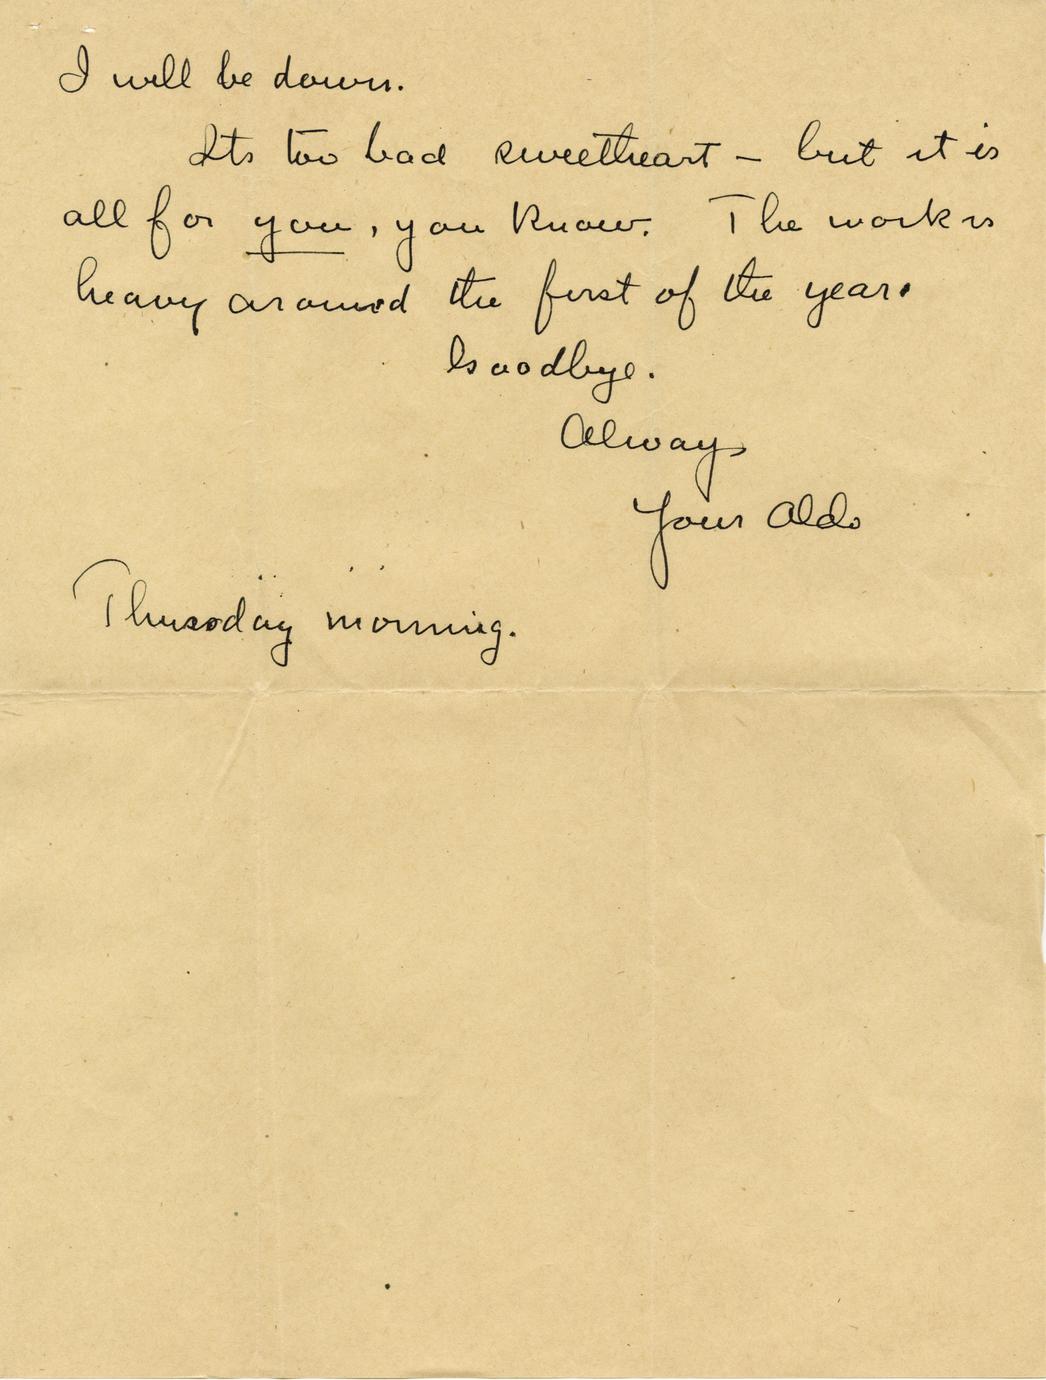 I will be down.
Its too bad sweetheart – but it is
all for you, you know. The work is
heavy around the first of the year.
Goodbye.
Always
Your Aldo
Thursday morning.